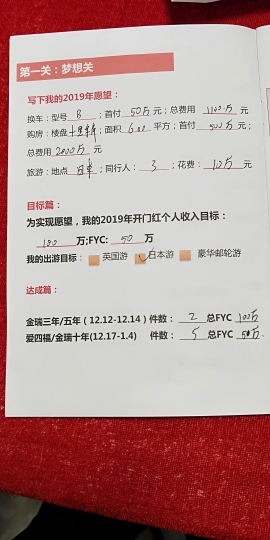 第一关：梦想关
写下我的2019年愿望：
换车：型号 B ；首付 50万 元；总费用 1100万 元
购房：楼盘 十里 ；面积 600 平方；首付 500万 元；
总费用 2000万 元
旅游：地点 日本 ；同行人： 3 ；花费： 10万 元
目标篇：
为实现愿望，我的2019年开门红个人收入目标：
100 万;FYC: 50 万
我的出游目标： 英国游 日本游 豪华邮轮游
达成篇：
金瑞三年/五年（12.12-12.14）件数： 2 总FYC 100万
爱四福/金瑞十年(12.17-1.4) 件数： 5 总FYC 50万.